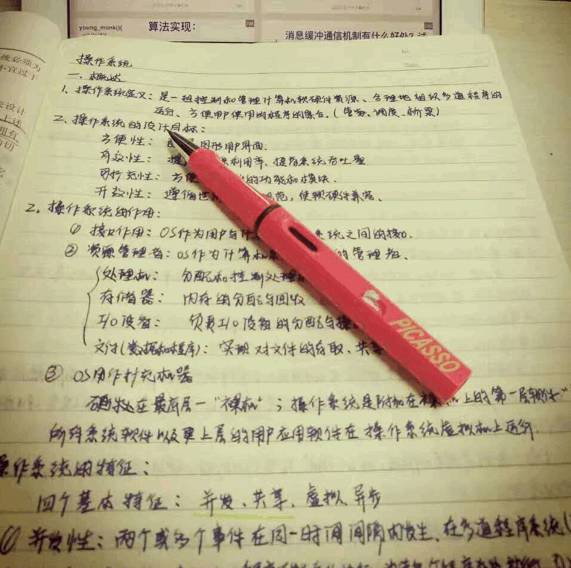 young_monk()
算法实现:
消息缓冲通信机制有什么好处?
操作系统
一、概述
1、操作系统定义: 是一组控制和管理计算机软硬件资源、合理地组织多道程序的
运行、方便用户使用的程序的集合。(管家、调度、桥梁)
2、操作系统的设计目标:
方便性: 图形用户界面.
有效性: 利用率、提高系统吞吐量
可扩充性: 方便 的功能和模块.
开放性: 遵循世 规范, 使软硬件兼容.
2、操作系统的作用:
① 接口作用: OS作为用户与计 系统之间的接口.
② 资源管理者: OS作为计算机 的管理者.
处理机: 分配和控制处理
存储器: 内存的分配与回收
I/O设备: 负责I/O设备的分配与操
文件(数据和程序): 实现对文件的存取、共享
③ OS用作扩充机器
硬件在最底层—"裸机"; 操作系统是附加在裸 上的第一层软件"
所有系统软件以及更上层的用户应用软件在操作系统虚拟机上运行
操作系统的特征:
四个基本特征: 并发、共享、虚拟、异步
① 并发性: 两个或多个事件在同一时间间隔内发生. 在多道程序系统
PICASSO